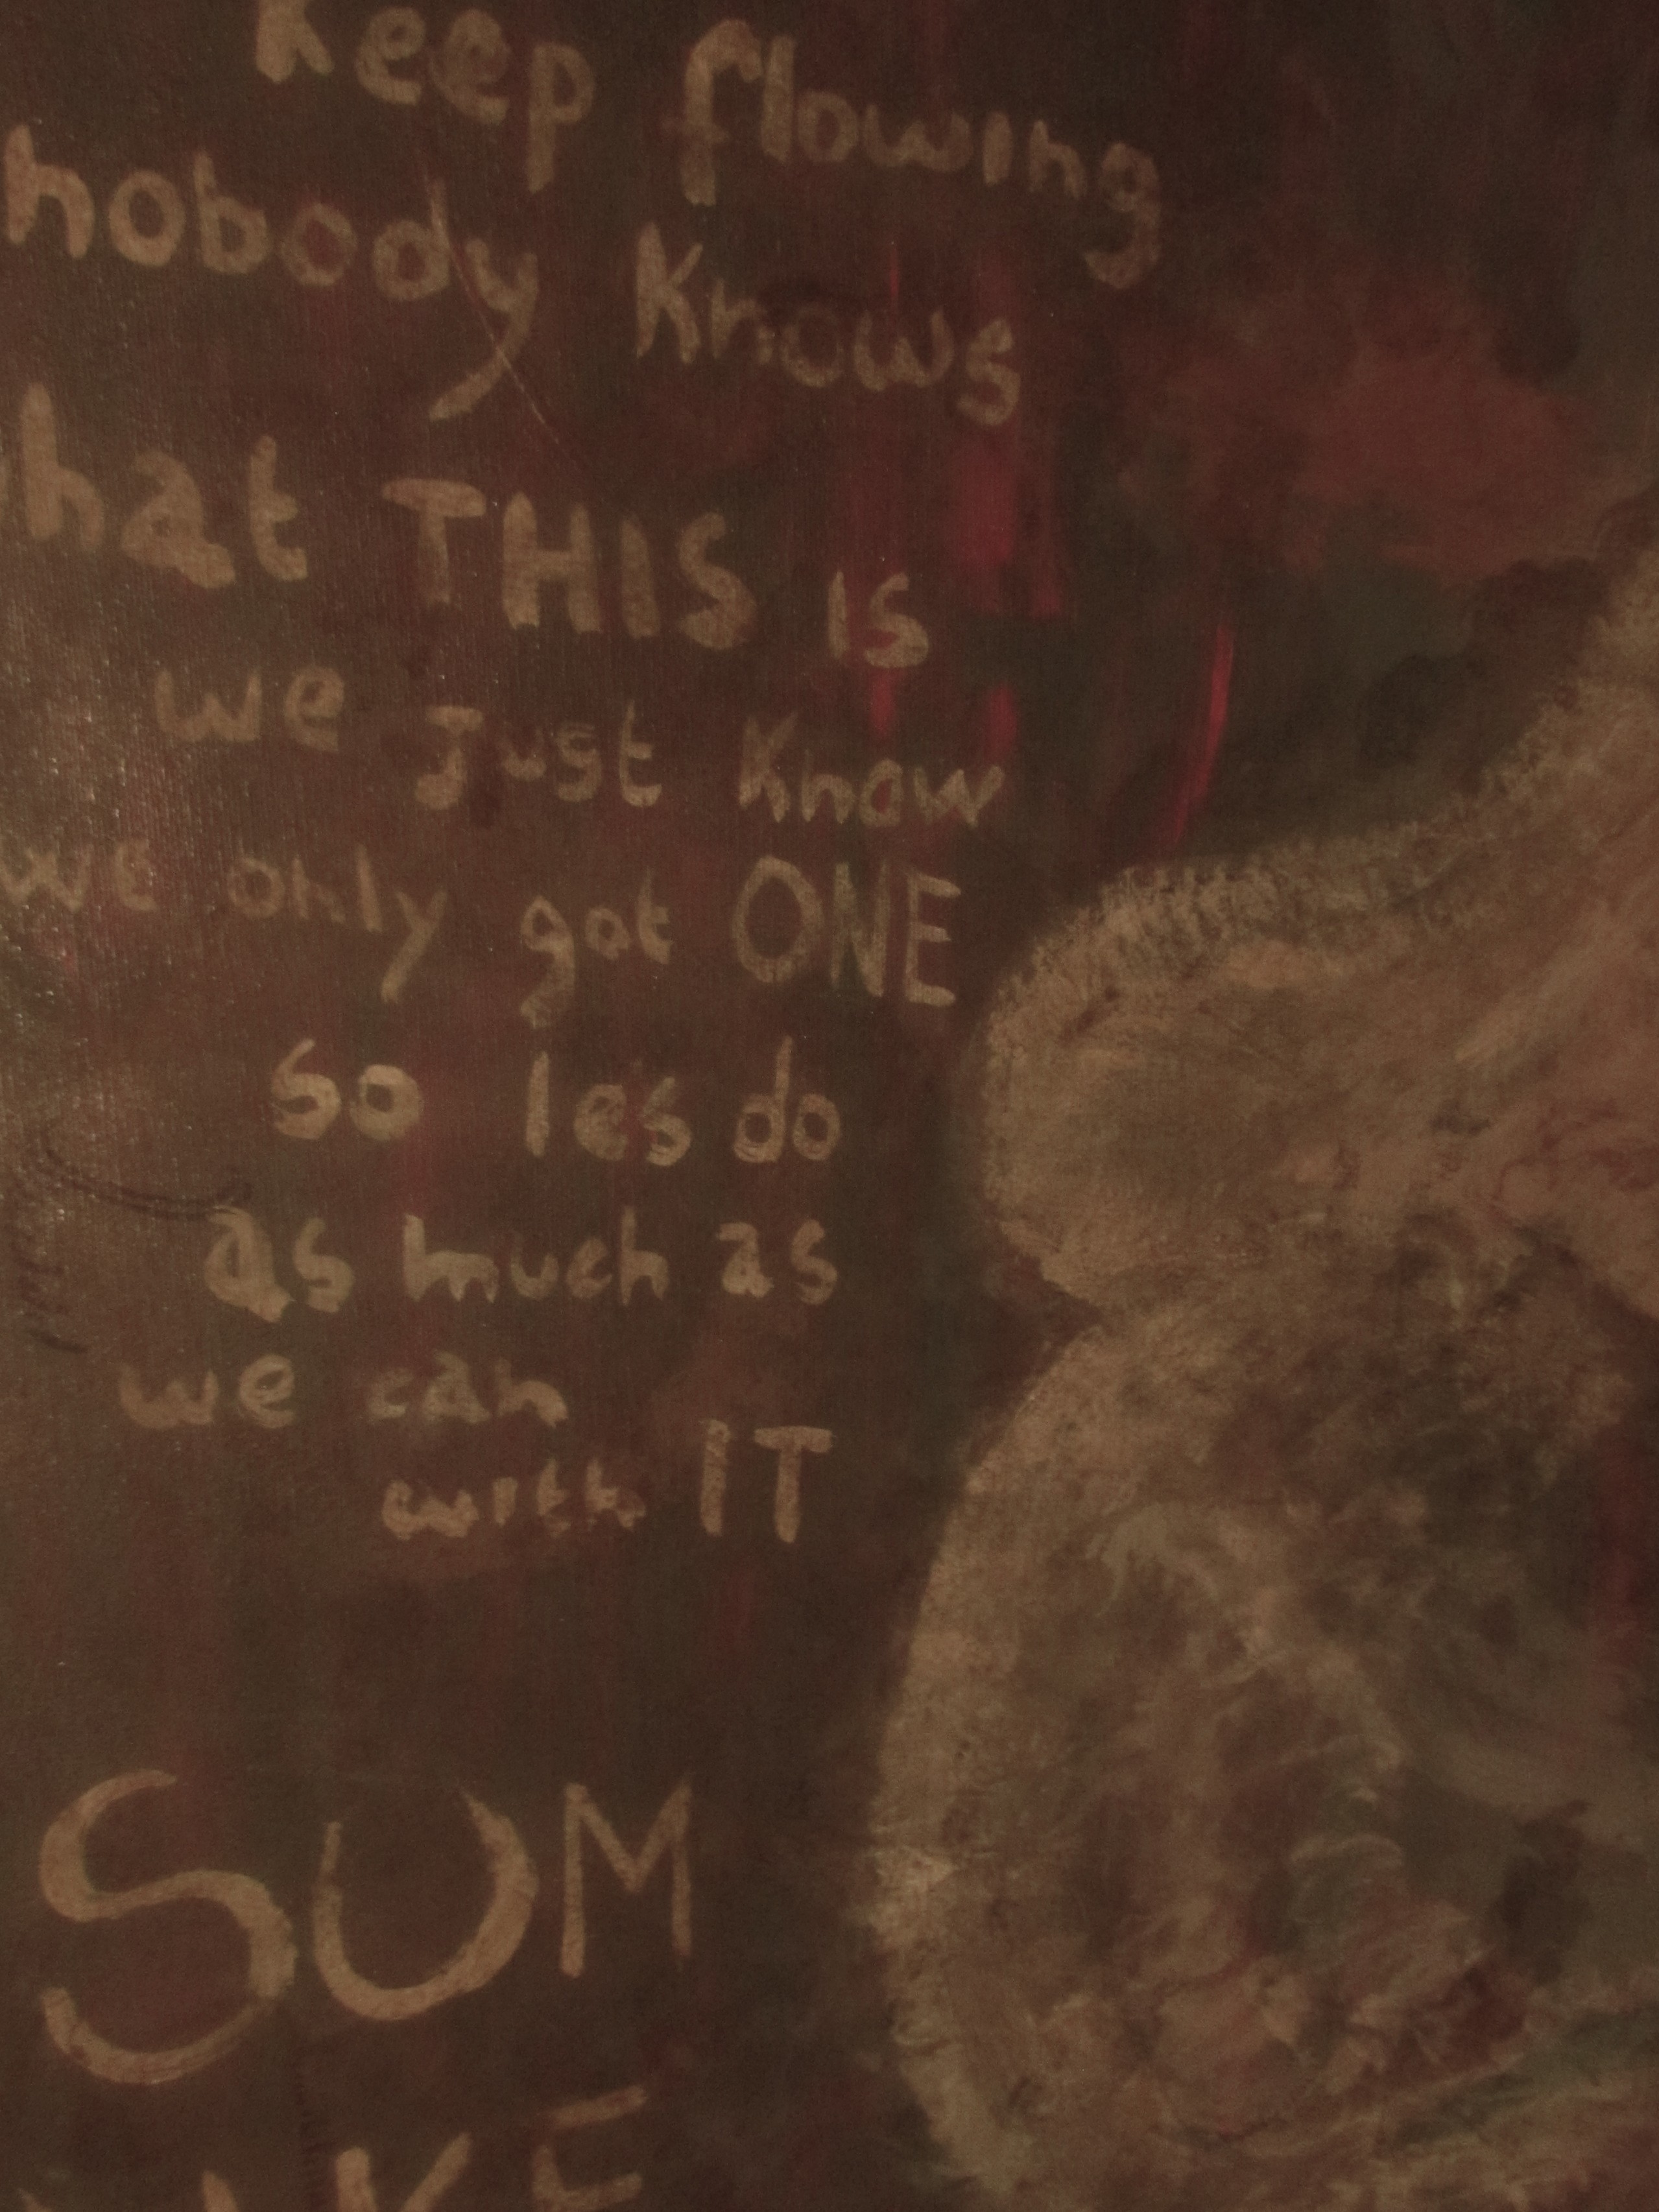 keep flowing
nobody knows
hat THIS is
we just know
we only got ONE
so les do
as much as
we can
with IT
SUM
IKE